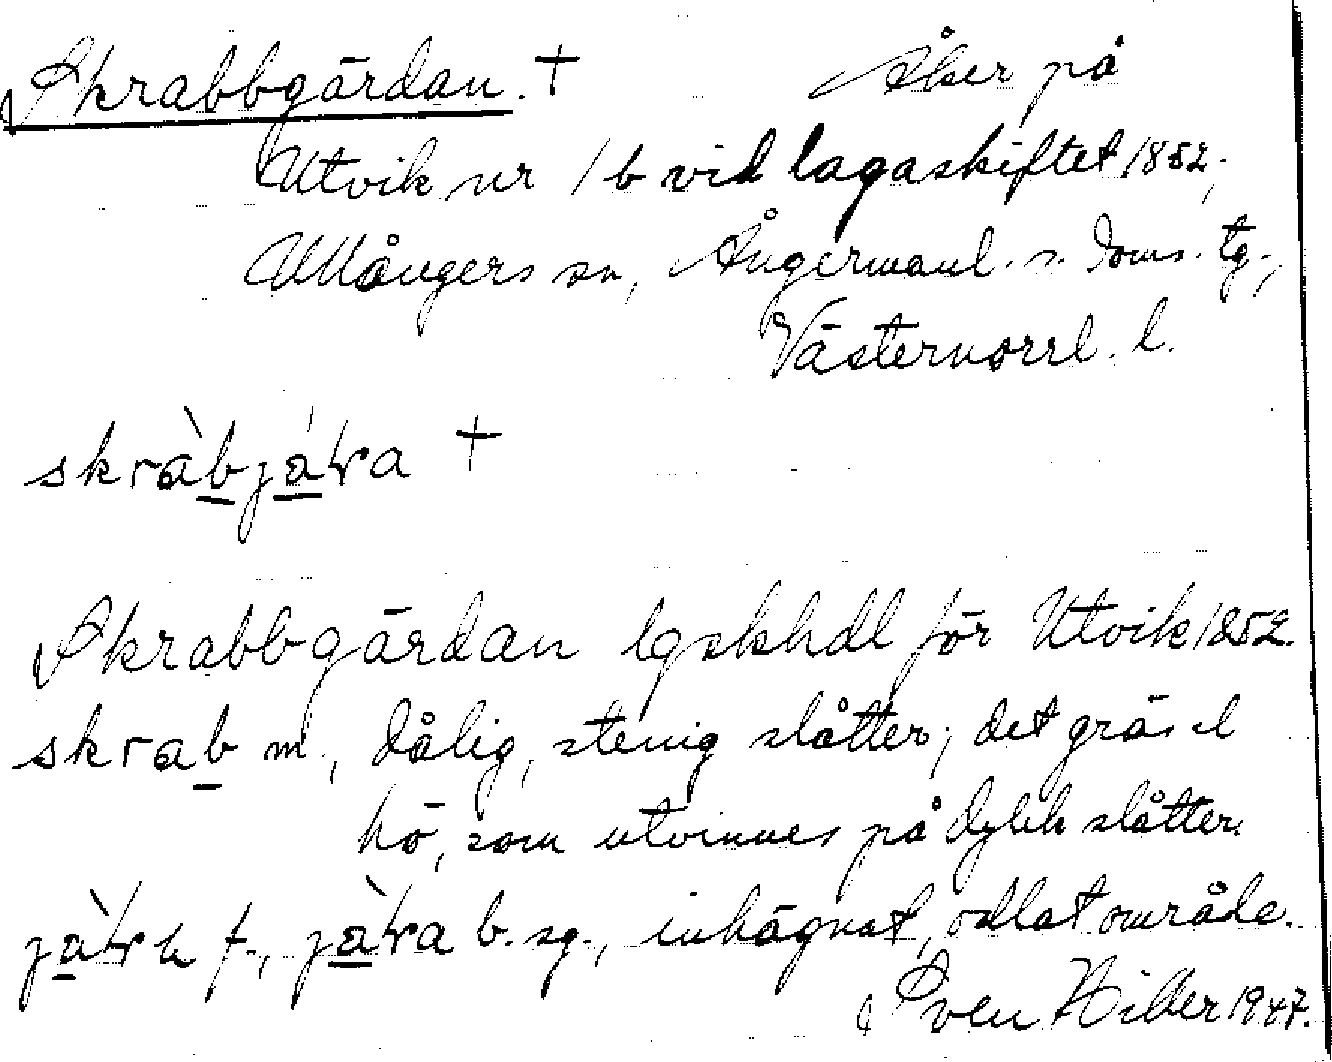 Skrabbgärdan. + Åker på
Utvik nr 1b vid lagaskiftet 1852;
Ullångers sn, Ångermanl. s. doms. tg.,
Västernorrl. l.
skràbjáɽa +
Skrabbgärdan lgskhdl för Utvik 1852.
skrab m., dålig, stenig slåtter; det gräs el
hö, som utvinnes på dylik slåtter.
f., b. sg., inhägnat, odlat område.
Sven Hiller 1947.